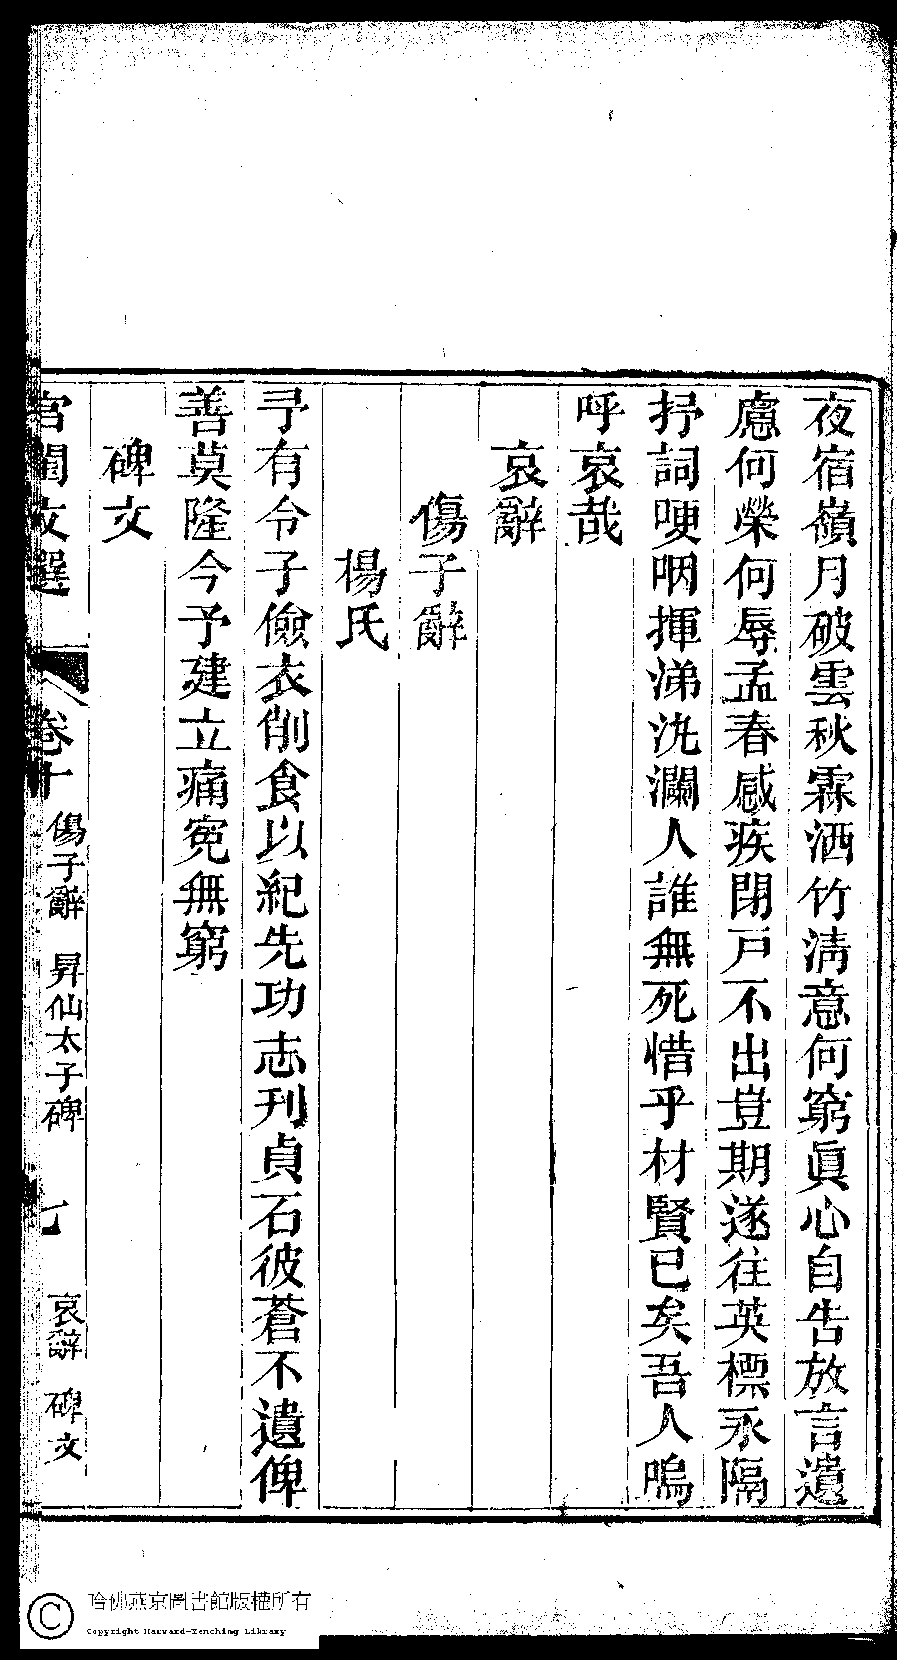 夜宿嶺月破雲秋霖洒竹淸意何窮眞心自吿放言遺
慮何榮何辱孟春感疾閉戸不出豈期遂往英標永隔
抒詞哽咽揮涕汍瀾人誰無死惜乎材賢已矣吾人嗚
呼哀哉
哀辭
傷子辭
楊氏
予有令子儉衣削食以紀先功志刊貞石彼蒼不遺俾
善莫隆今予建立痛寃無窮
碑文
宮閨文選
卷十
傷子辭 昇仙太子碑
七
哀辭 碑文
哈佛燕京圖書館版權所有
Copyright Harvard-Yenching Library